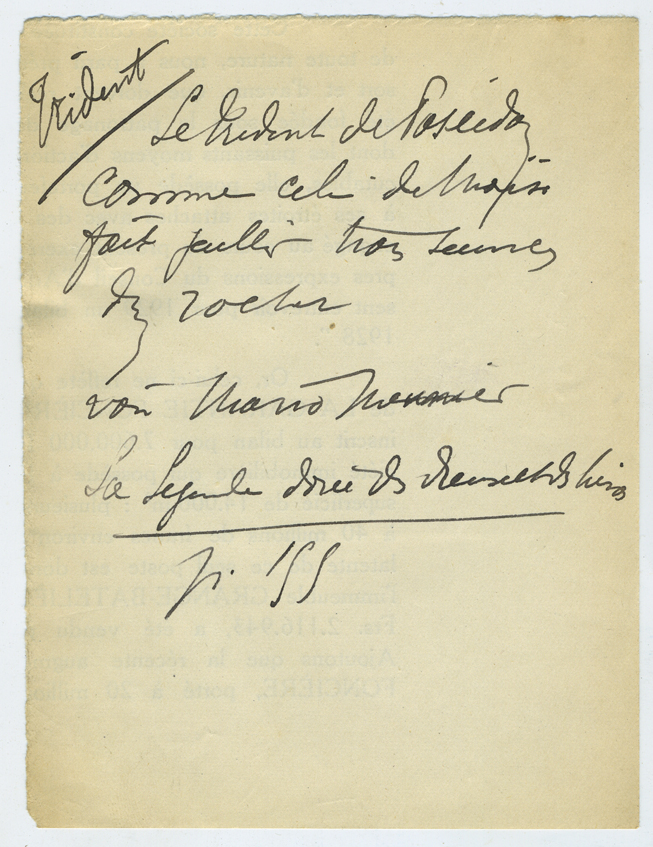 Trident
Le trident de Poseidon
comme celui de Moïse
fait jaillir trois sources
du rocher
voir Mario Meunier
La Légende dorée des dieux et des héros
p. 155